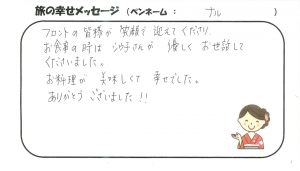 旅の幸せメッセージ（ペンネーム： ナル ）
フロントの皆様が 笑顔で 迎えてくださり
お食事の時は 沙子さんが 優しく お世話して
くださいました。
お料理が 美味しくて 幸せでした。
ありがとう ございました!!